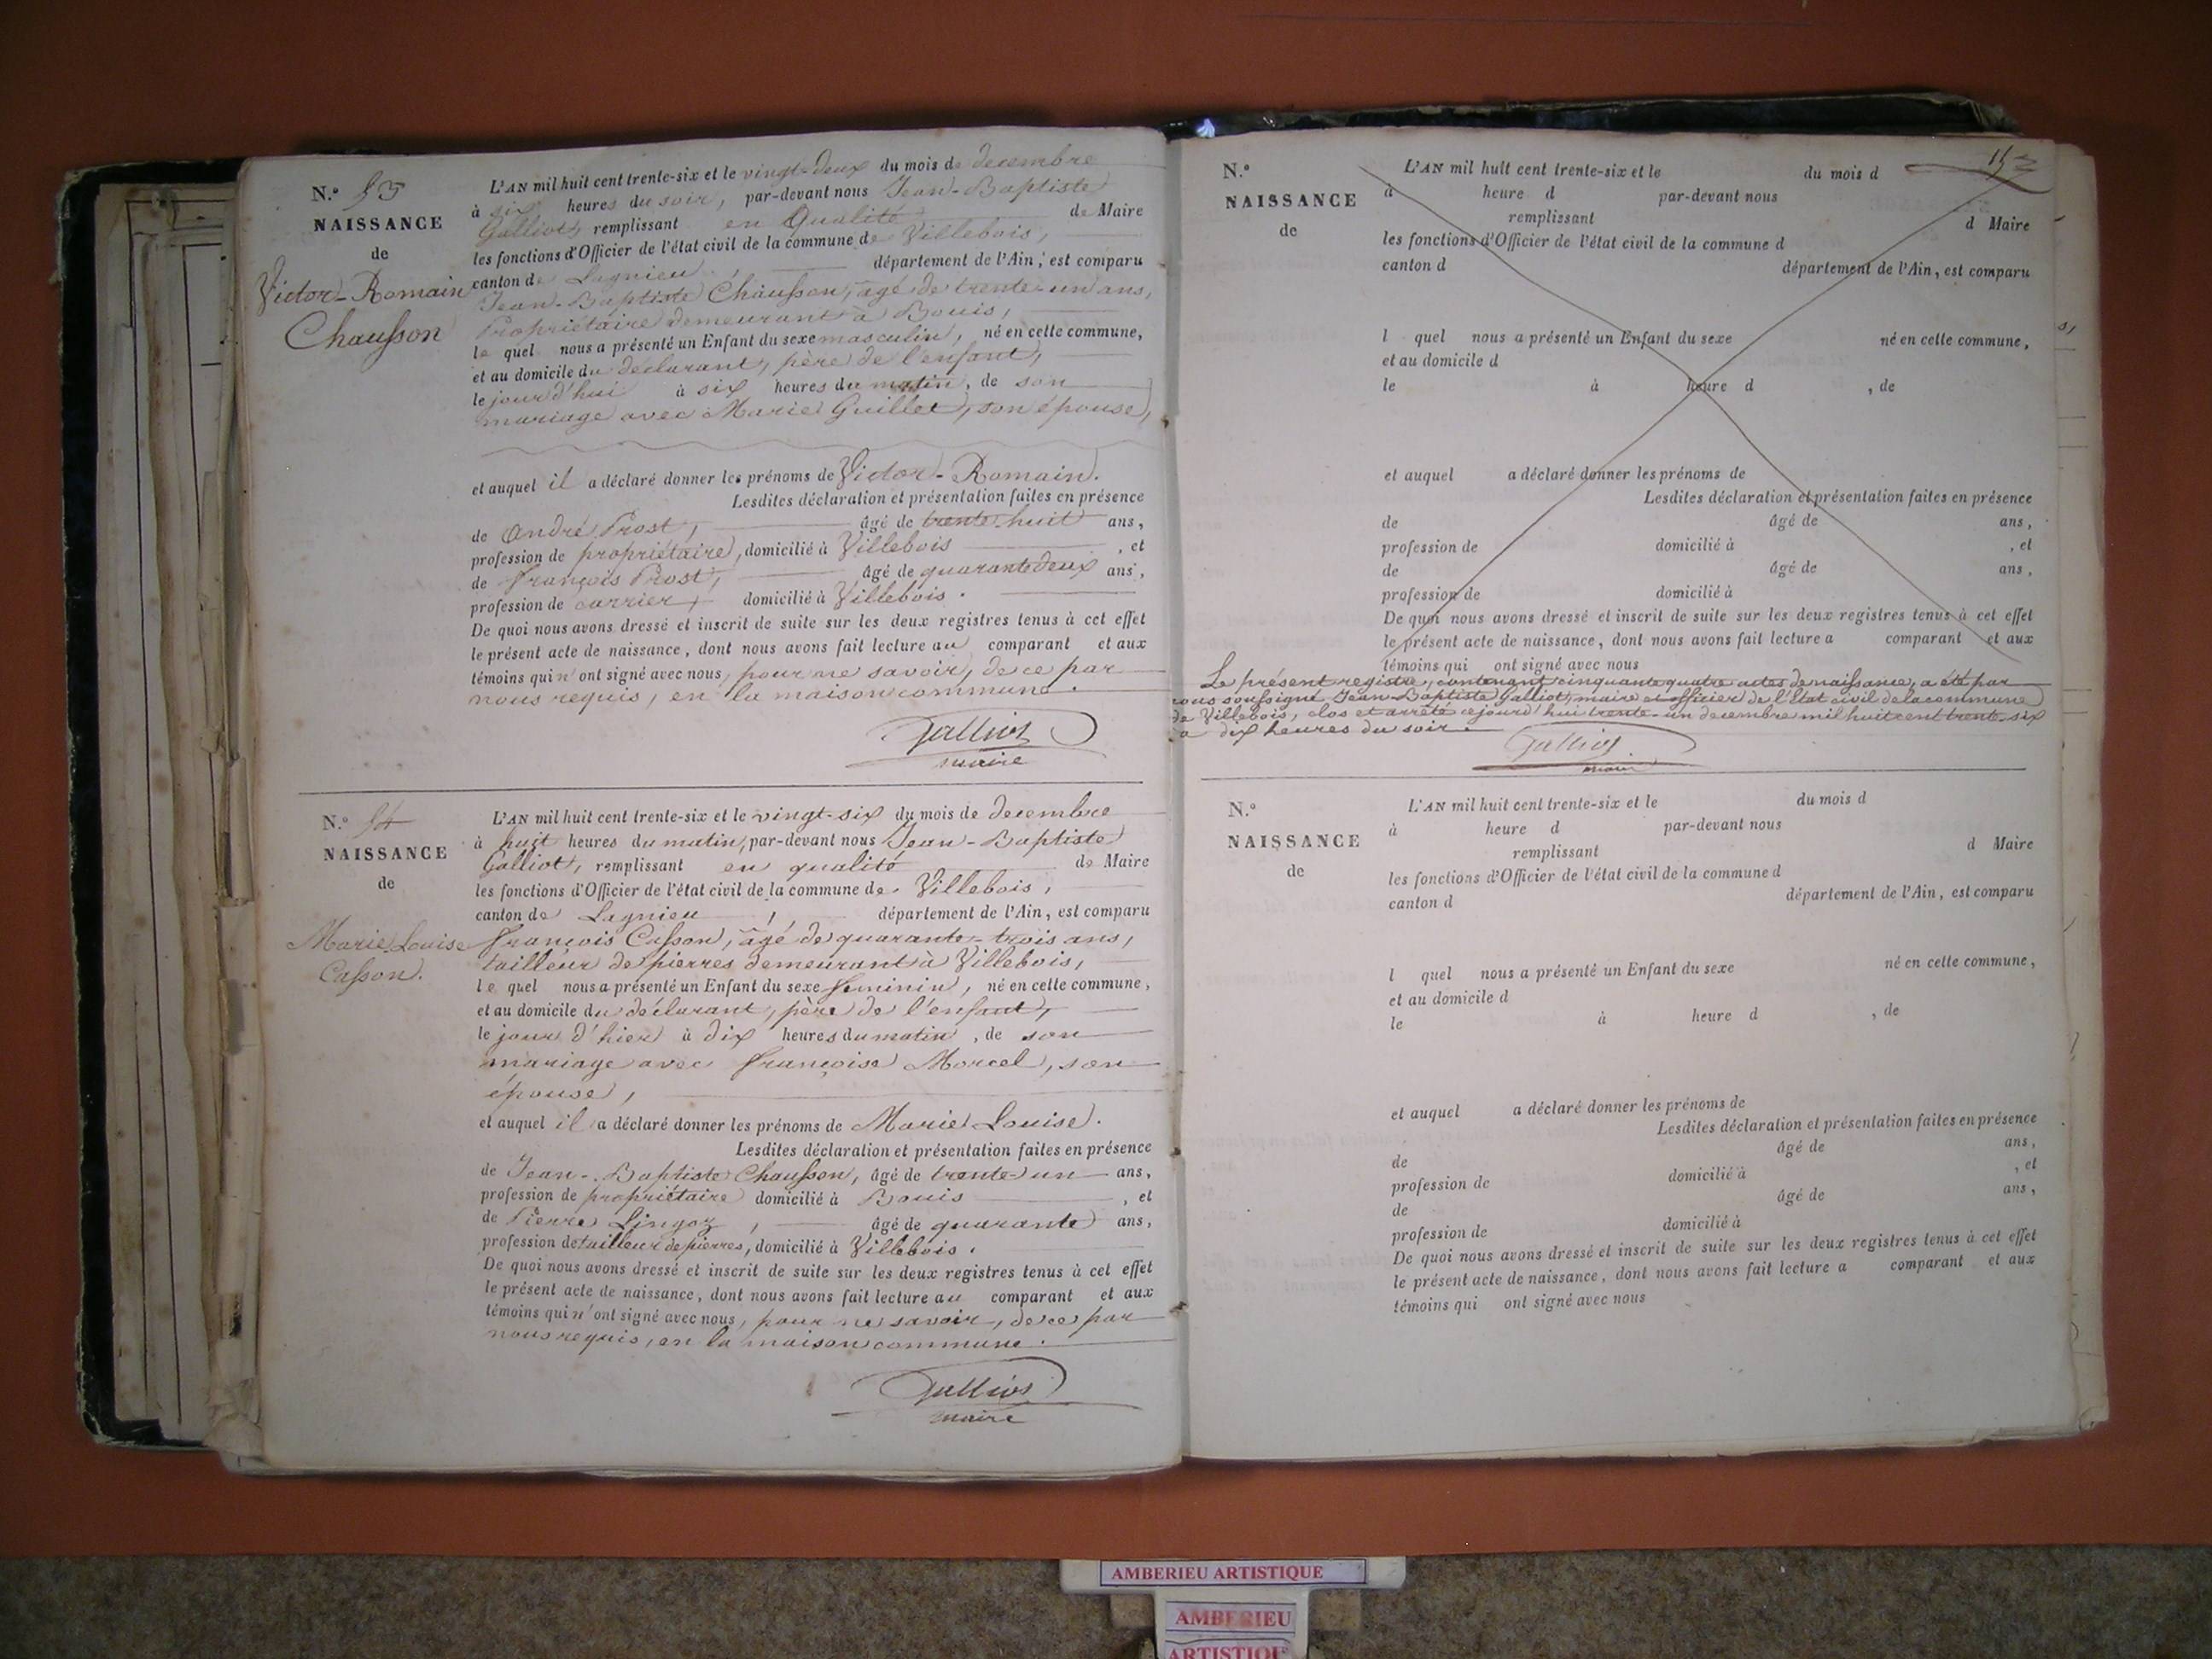 N.° 53
NAISSANCE
de
Victor-Romain
Chausson
L'AN mil huit cent trente-six et le vingt-deux du mois de decembre
à six heures du soir, par-devant nous Jean-Baptiste
Galliot, remplissant en Qualité de Maire
les fonctions d'Officier de l'état civil de la commune de Villebois,
canton de Lagnieu, département de l'Ain, est comparu
Jean-Baptiste Chausson, âgé de trente-un ans,
Propriétaire demeurant à Bouis,
le quel nous a présenté un Enfant du sexe masculin, né en cette commune,
et au domicile du déclarant, père de l'enfant,
le jour d'hui à six heures du matin, de son
mariage avec Marie Guillet, son épouse,
et auquel il a déclaré donner les prénoms de Victor-Romain.
Lesdites déclaration et présentation faites en présence
de André Prost, âgé de trente-huit ans,
profession de propriétaire, domicilié à Villebois, et
de François Prost, âgé de quarante deux ans,
profession de carrier, domicilié à Villebois.
De quoi nous avons dressé et inscrit de suite sur les deux registres tenus à cet effet
le présent acte de naissance, dont nous avons fait lecture au comparant et aux
témoins qui n'ont signé avec nous, pour ne savoir, de ce par
nous requis, en la maison commune.
Galliot
maire
N.° 54
NAISSANCE
de
Marie Louise
Casson.
L'AN mil huit cent trente-six et le vingt-six du mois de decembre
à huit heures du matin, par-devant nous Jean-Baptiste
Galliot, remplissant en qualité de Maire
les fonctions d'Officier de l'état civil de la commune de Villebois,
canton de Lagnieu, département de l'Ain, est comparu
François Casson, âgé de quarante-trois ans,
tailleur de pierres demeurant à Villebois,
le quel nous a présenté un Enfant du sexe feminin, né en cette commune,
et au domicile du déclarant, père de l'enfant,
le jour d'hier à dix heures du matin, de son
mariage avec Françoise Morcel, son
épouse,
et auquel il a déclaré donner les prénoms de Marie Louise.
Lesdites déclaration et présentation faites en présence
de Jean-Baptiste Chausson, âgé de trente-un ans,
profession de propriétaire domicilié à Bouis, et
de Pierre Lingoz, âgé de quarante ans,
profession de tailleur de pierres, domicilié à Villebois.
De quoi nous avons dressé et inscrit de suite sur les deux registres tenus à cet effet
le présent acte de naissance, dont nous avons fait lecture au comparant et aux
témoins qui n'ont signé avec nous, pour ne savoir, de ce par
nous requis, en la maison commune.
Galliot
maire
153
N.°
NAISSANCE
de
L'AN mil huit cent trente-six et le du mois d
à heure d par-devant nous
remplissant d Maire
les fonctions d'Officier de l'état civil de la commune d
canton d département de l'Ain, est comparu
l quel nous a présenté un Enfant du sexe né en cette commune,
et au domicile d
le à heure d , de
et auquel a déclaré donner les prénoms de
Lesdites déclaration et présentation faites en présence
de âgé de ans,
profession de domicilié à , et
de âgé de ans,
profession de domicilié à
De quoi nous avons dressé et inscrit de suite sur les deux registres tenus à cet effet
le présent acte de naissance, dont nous avons fait lecture a comparant et aux
témoins qui ont signé avec nous
Le présent registre, contenant cinquante quatre actes de naissance, a été par
nous soussigné Jean-Baptiste Galliot, maire et officier de l'état civil de la commune
de Villebois, clos et arrêté cejourd'hui trente-un decembre mil huit cent trente-six
à dix heures du soir.
Galliot
maire
N.°
NAISSANCE
de
L'AN mil huit cent trente-six et le du mois d
à heure d par-devant nous
remplissant d Maire
les fonctions d'Officier de l'état civil de la commune d
canton d département de l'Ain, est comparu
l quel nous a présenté un Enfant du sexe né en cette commune,
et au domicile d
le à heure d , de
et auquel a déclaré donner les prénoms de
Lesdites déclaration et présentation faites en présence
de âgé de ans,
profession de domicilié à , et
de âgé de ans,
profession de domicilié à
De quoi nous avons dressé et inscrit de suite sur les deux registres tenus à cet effet
le présent acte de naissance, dont nous avons fait lecture a comparant et aux
témoins qui ont signé avec nous
AMBERIEU ARTISTIQUE
AMBERIEU
ARTISTIQUE